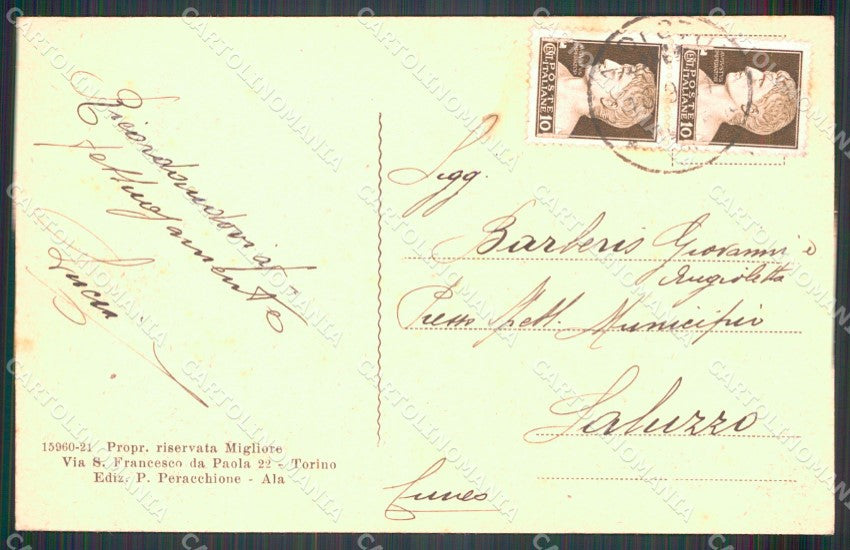 Ricordandovi af-
fettuosamente
POSTE
ITALIANE
10
POSTE
ITALIANE
10
Sigg.
Barberis Giovanni e
Angioletta
Presso Spett. Municipio
Saluzzo
Cuneo
15960-21 Propr. riservata Migliore
Via S. Francesco da Paola 22 - Torino
Ediz. P. Peracchione - Ala
CARTOLINOMANIA